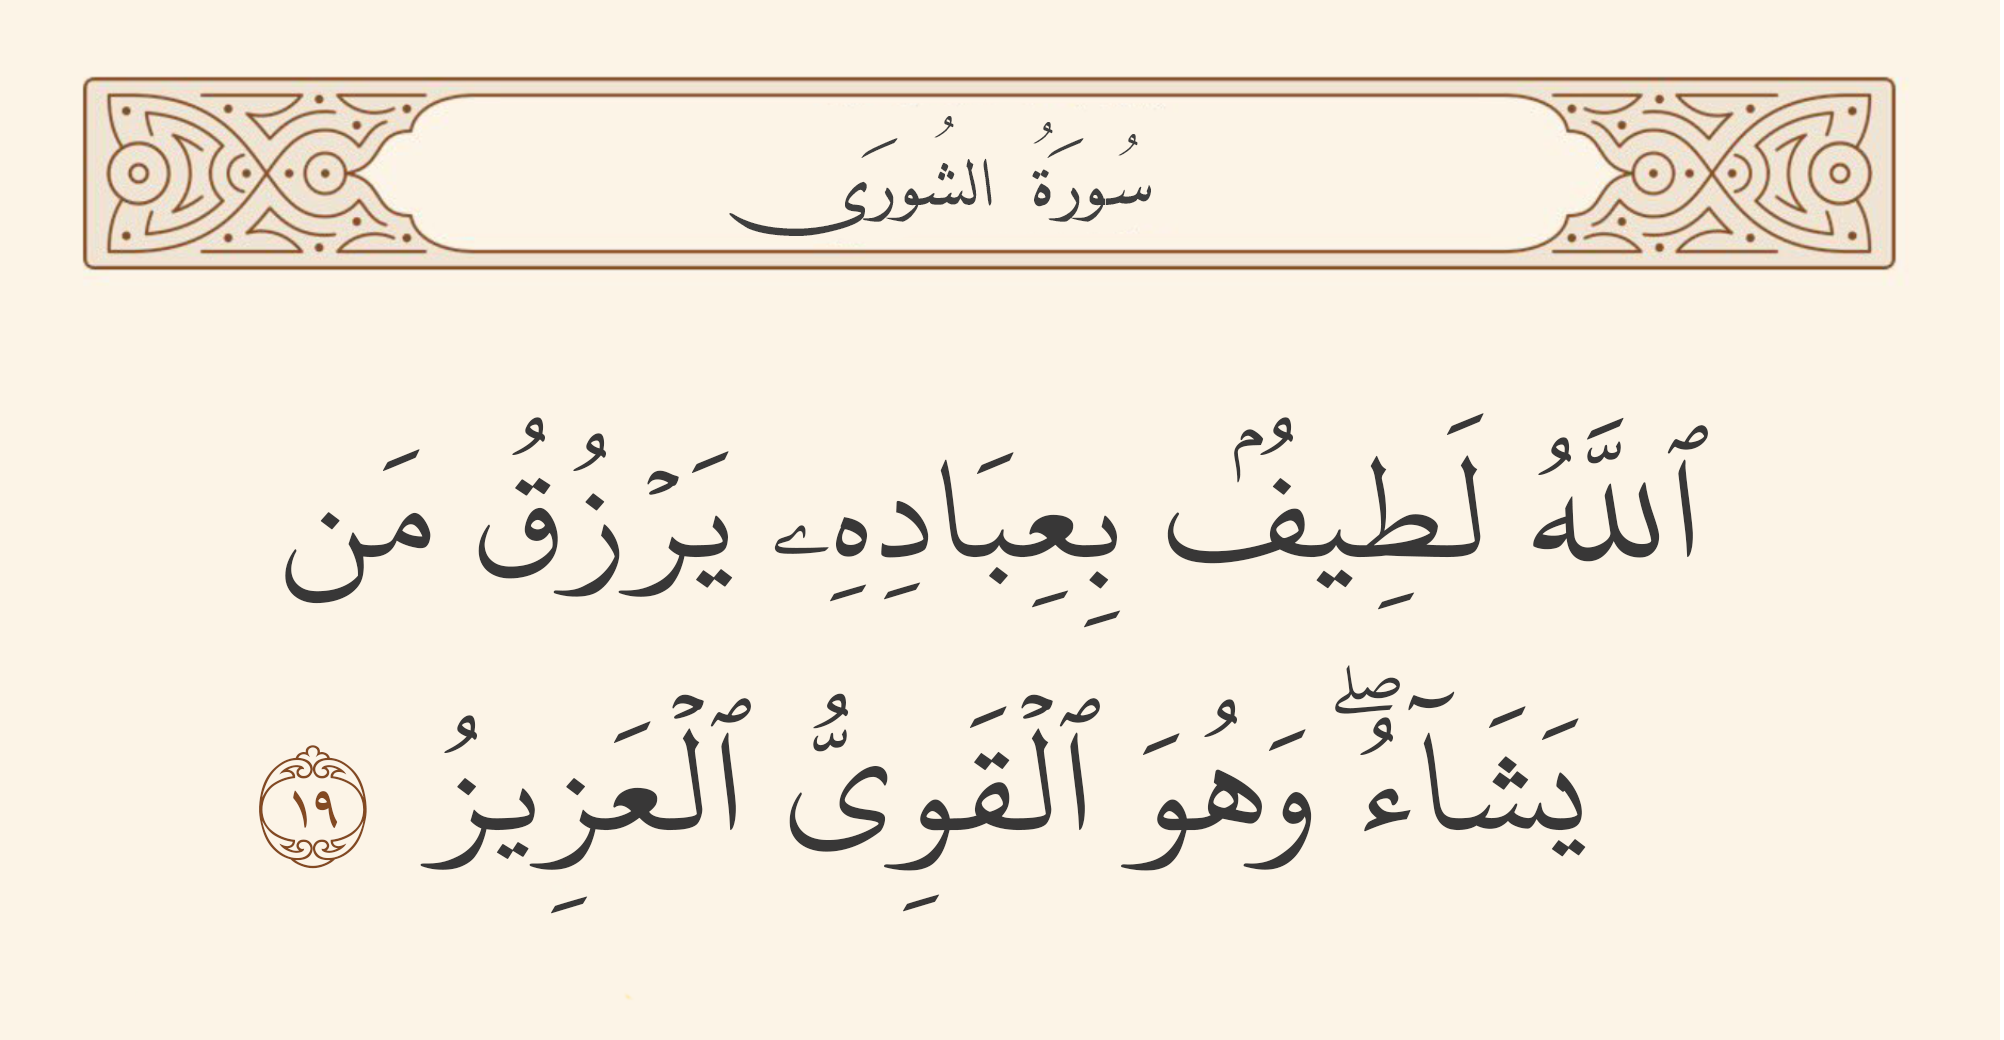 سُورَةُ الشُورَى
ٱللَّهُ لَطِيفُۢ بِعِبَادِهِۦ يَرۡزُقُ مَن
يَشَآءُۖ وَهُوَ ٱلۡقَوِىُّ ٱلۡعَزِيزُ ١٩